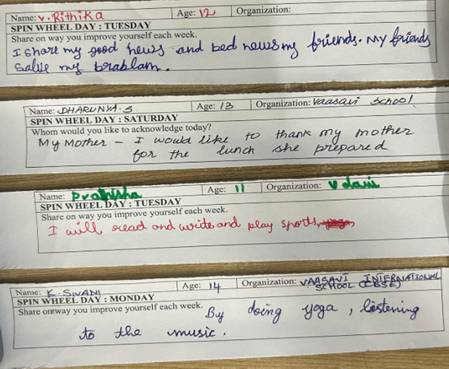 Name: V. Rithika Age: 12 Organization:
SPIN WHEEL DAY : TUESDAY
Share on way you improve yourself each week.
I share my good news and bed news my friends. My friends
salve my brablam.
Name: DHARUNYA.S Age: 13 Organization: Vaasavi School
SPIN WHEEL DAY : SATURDAY
Whom would you like to acknowledge today?
My Mother - I would like to thank my mother
for the lunch she prepared
Name: Prathisha Age: 11 Organization:
SPIN WHEEL DAY : TUESDAY
Share on way you improve yourself each week.
I will read and write and play sports
Name: K. SIVANI Age: 14 Organization: VAASAVI INTERNATIONAL
SCHOOL (CBSE)
SPIN WHEEL DAY : MONDAY
Share one way you improve yourself each week. By doing yoga, listening
to the music.